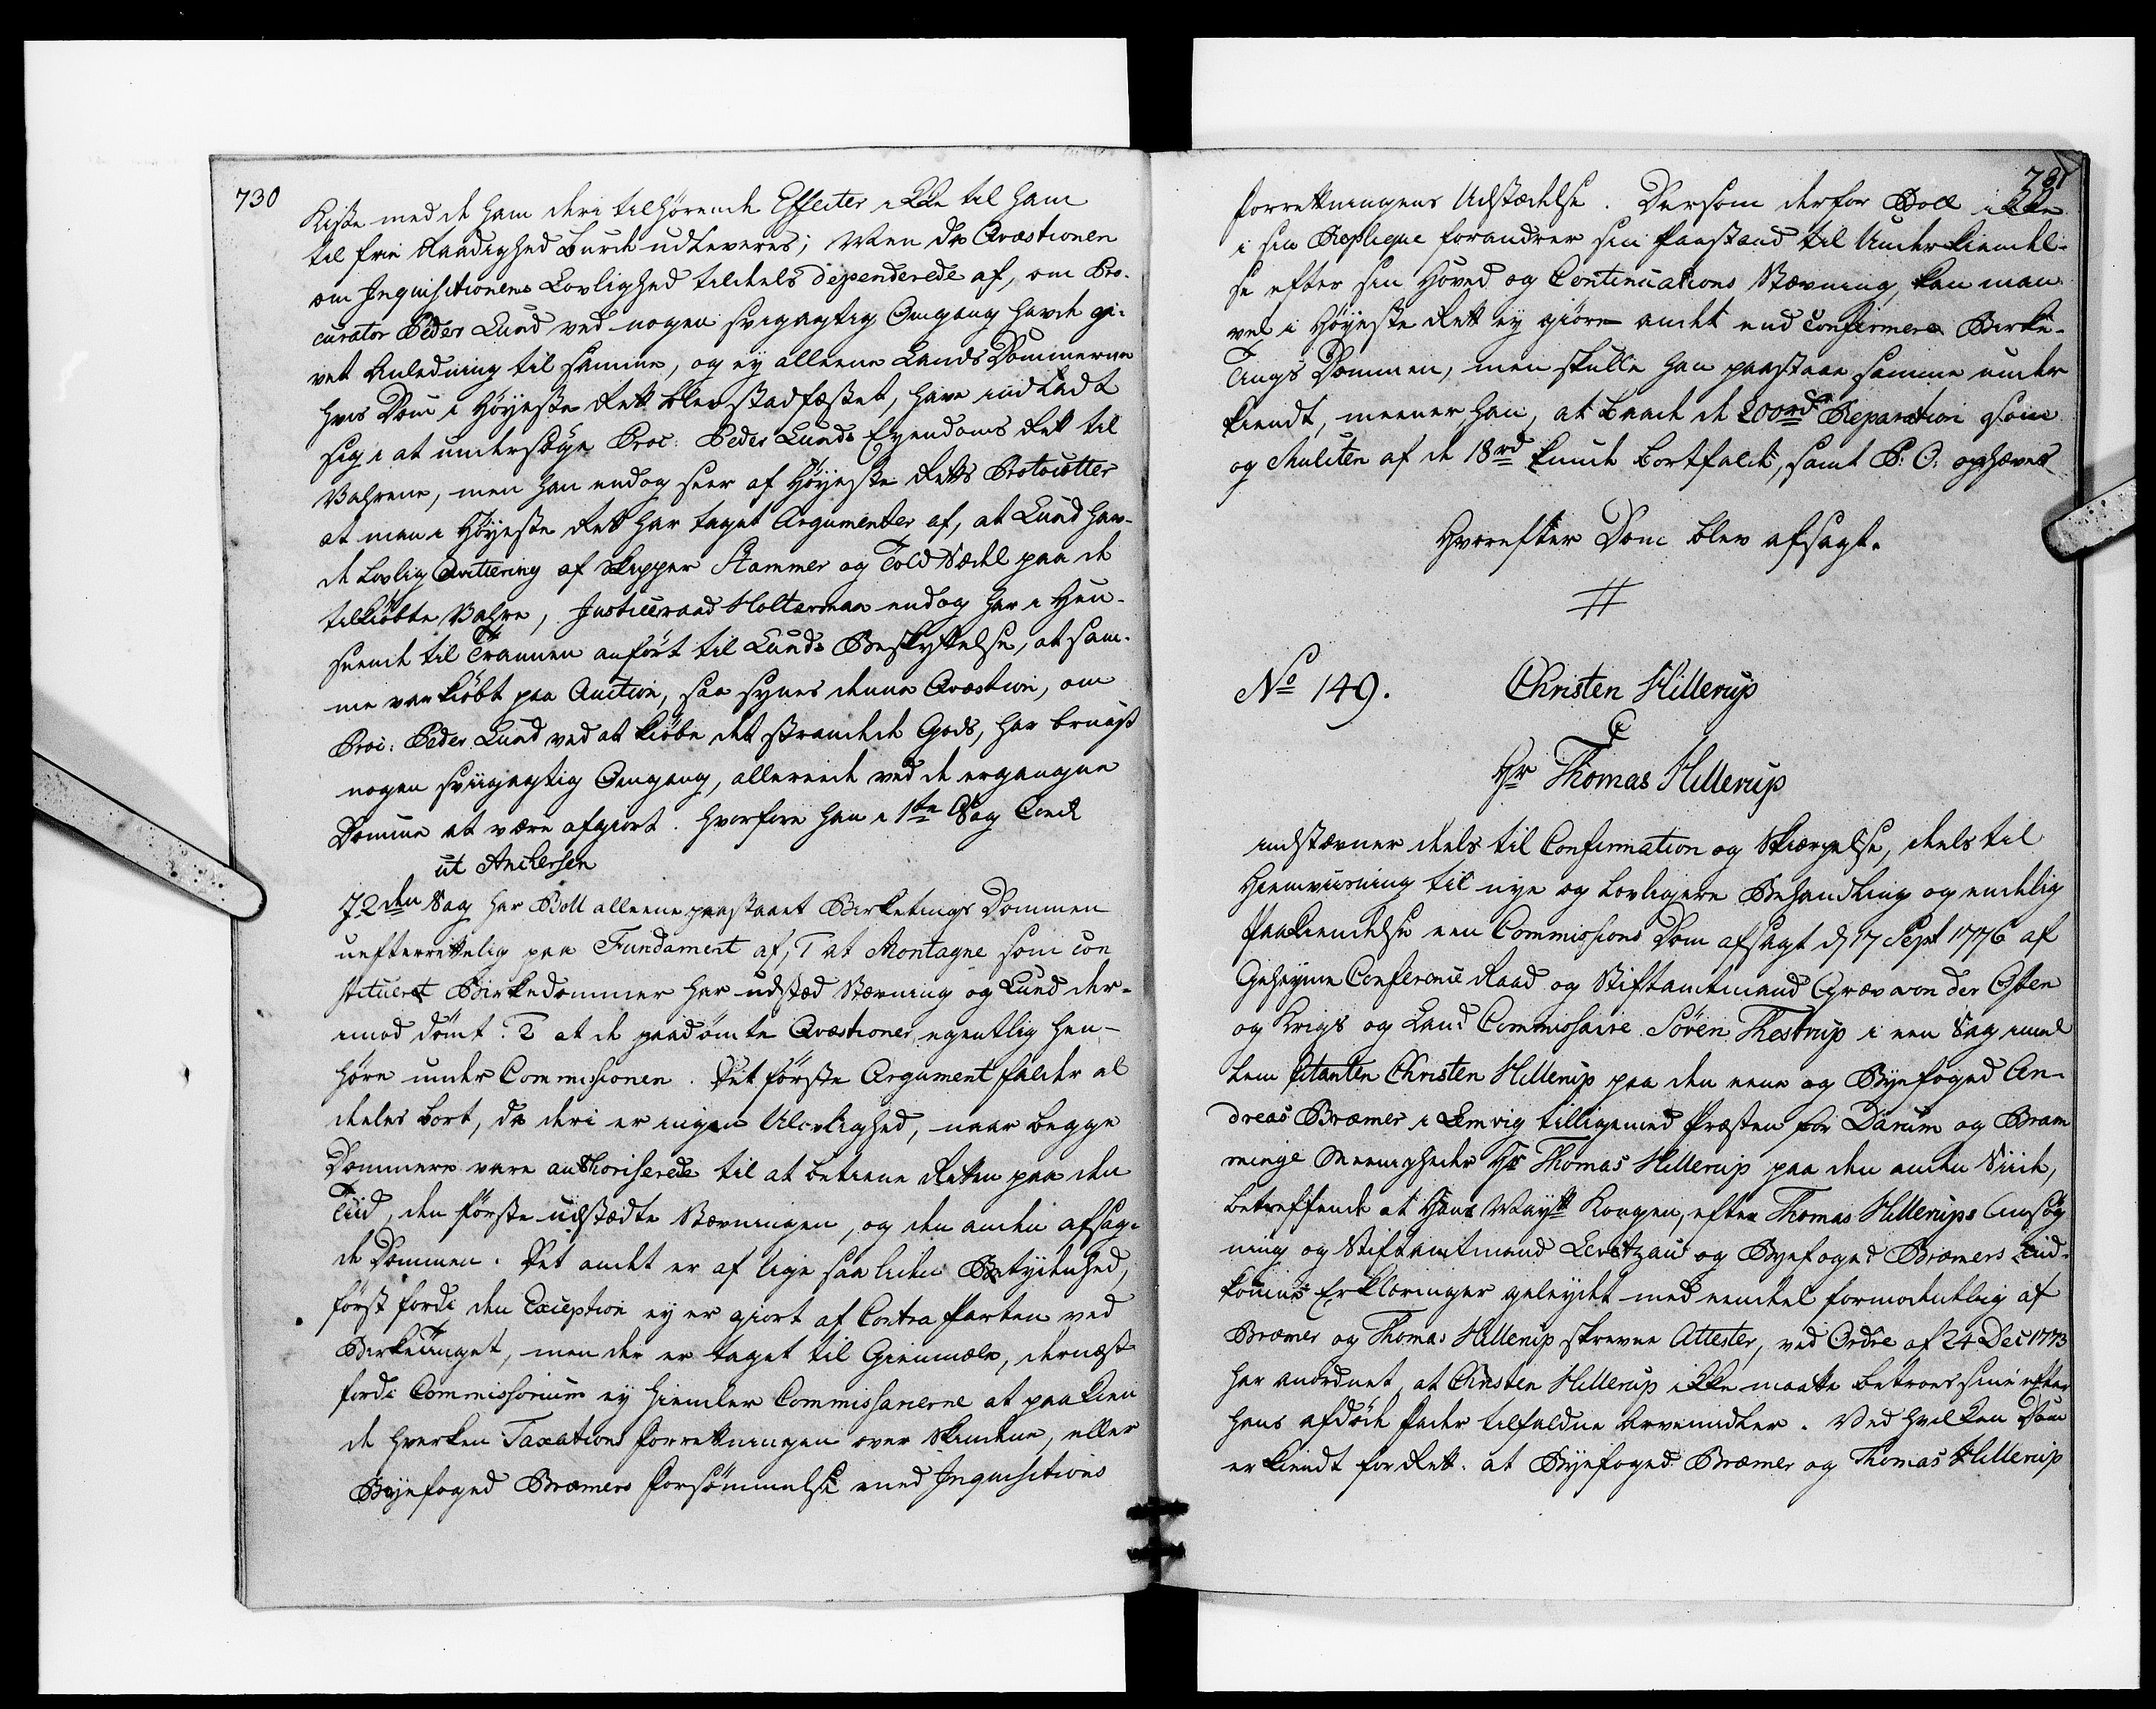 730
Kiste med de ham deri tilhørende Effecter ikke til ham
til frie Raadighed burde udleveres; Men da Qvæstionen
om Inquisitionens Lovlighed tildeels dependerede af, om Pro-
curator Peder Lund ved nogen svigagtig Omgang havde gi-
vet Anledning til samme, og ey alleene Lands Dommerne
hvis Dom i Høyeste Rett blev stadfæstet, have indladt
sig i at undersøge Proc: Peder Lunds Eyendoms Ret til
Vahrene, men han endog seer af Høyeste Retts Protocoller
at man i Høyeste Rett har taget Argumenter af, at Lund hav-
de lovlig Qvittering af Skipper Hammer og Told Sedel paa de
tilkiøbte Vahre, Justiceraad Holterman endog har i Hen-
seende til Trannen anført til Lunds Beskyttelse, at sam-
me var kiøbt paa Auction, saa synes denne Qvæstion, om
Proc: Peder Lund ved at kiøbe det strandede Gods, har brugt
nogen sviigagtig Omgang, allereede ved de ergangne
Domme at være afgiort. Hvorfore han i 1te Sag Concl
ut Anchersen
I 2den Sag har Boll alleene paastaaet Birketings Dommen
uefterrettelig paa Fundament af, 1 at Montagne som con
stitueret Birkedommer har udstæd Stævning og Lund der-
imod dömt. 2 at de paadömte Qvæstioner egentlig hen-
hörn under Commissionen. Det förste Argument falder al
deeles bort, da deri er ingen Ulovlighed, naar begge
Dommere vare authoriserede til at betiene Retten paa den
Tiid, den förste udstædte Stævningen, og den anden afsag-
de Dommen. Det andet er af lige saa liden Betydenhed,
först fordi den Exception ey er giort af Contra Parten ved
Birketinget, men der er taget til Gienmæle, dernæst
fordi Commissorium ey hiemler Commissarierne at paakien
de hverken Taxations Forrettningen over Skindene, eller
Byefoged Bræmers Forsömmelse med Inquisitions
731
Forrettningens Udstædelse. Dersom derfor Boll ikke
i sin Replique forandrer sin Paastand til Underkiendel-
se efter sin Hoved og Continuations Stævning, kan man
vel i Høyeste Rett ey giöre andet end confirmere Birke-
Tings Dommen, men skulle han paastaae samme under
kiendt, meener han, at baade de 200rd Reparation som
og Mulcten af de 18rd kunde bortfalde, samt P: O: ophæves
Hvorefter Dom blev afsagt.
#
No 149.
Christen Hillerup
C
Hr Thomas Hillerup
indstævner deels til Confirmation og Skiærpelse, deels til
Hiemviisning til nye og lovligere Behandling og endelig
Paakiendelse een Commissions Dom afsagt d 17 Sept 1776 af
Geheyme Conference Raad og Stiftamtmand Grev von der Osten
og Krigs og Land Commissaire Sören Thestrup i een Sag imel
lem Citanten Christen Hillerup paa den eene og Byefoged An-
dreas Bræmer i Lemvig tilligemed Præsten for Darum og Bram
minge Meenigheder Hr Thomas Hillerup paa den anden Siide,
betreffende at Hans Maytt Kongen, efter Thomas Hillerups Ansög
ning og Stiftamtmand Levetzau og Byefoged Bræmers ind-
komne Erklæringer geleydet med eendeel formodentlig af
Bræmer og Thomas Hillerup skrevne Attester, ved Ordre af 24 Dec 1773
har anordnet, at Christen Hillerup ikke maatte betroes sine efter
hans afdöde Fader tilfaldne Arvemidler. Ved hvilken Dom
er kiendt for Rett. at Byefoged Bræmer og Thomas Hillerup